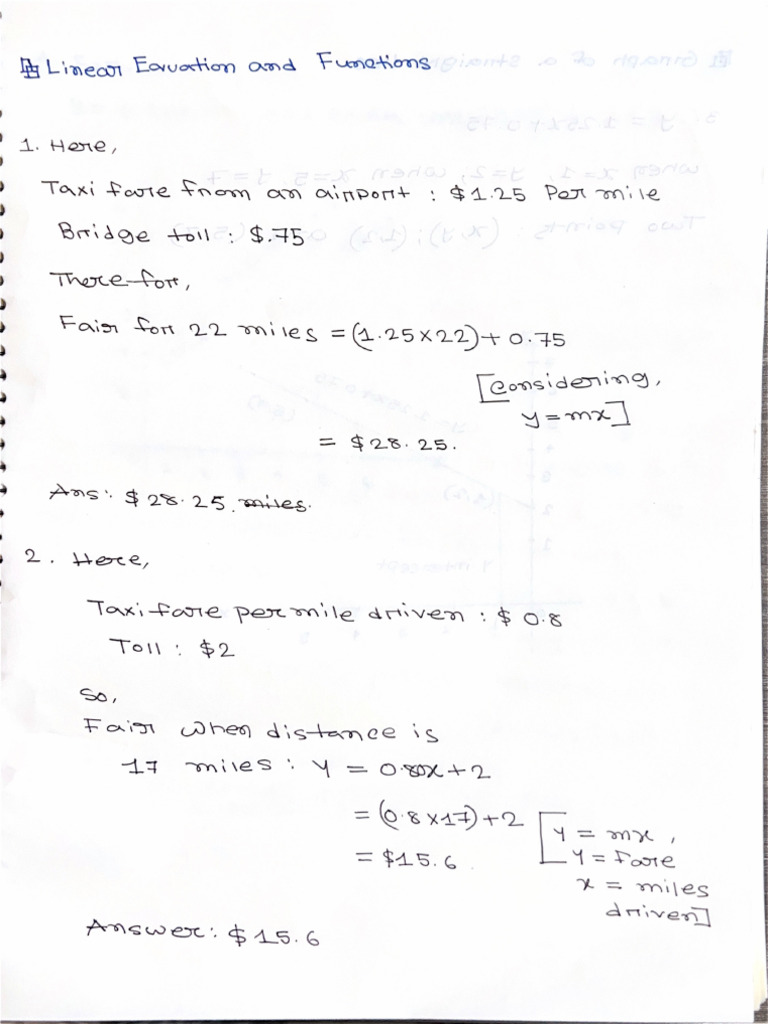 Linear Equation and Functions
1. Here,
Taxi fare from an airport : $1.25 Per mile
Bridge toll : $.75
Therefor,
Fair for 22 miles = (1.25×22)+ 0.75
[Considering,
y = mx]
= $28.25.
Ans: $28.25. miles.
2. Here,
Taxi fare per mile driven : $ 0.8
Toll : $2
So,
Fair when distance is
17 miles : Y = 0.80x + 2
= (0.8×17)+2
[Y = mx,
= $15.6
Y = Fare
x = miles
driven]
Answer: $15.6